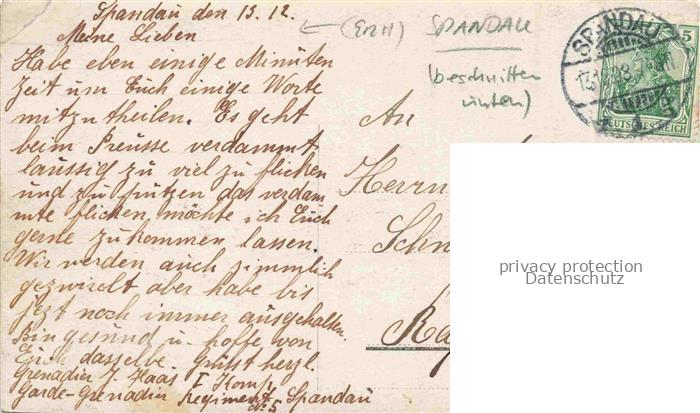 Spandau den 13.12.
Meine Lieben
Habe eben einige Minuten
Zeit um Euch einige Worte
mitzutheilen. Es geht
beim Preusse verdammt
laussig zu viel zu flicken
und zu putzen das verdam
mte flicken, möchte ich Euch
gerne zukommen lassen.
Wir werden auch zimmlich
gezwirelt aber habe bis
jezt noch immer ausgehalten.
Bin gesund u. hoffe von
Euch dasselbe. Grüsst herzl.
Grenadier J. Haas I Komp.
Garde-Grenadier Regiment Spandau
No 5
SPANDAU
(beschnitten
unten)
An
Herrn
Schn
SPANDAU
5
DEUTSCHES REICH
privacy protection
Datenschutz